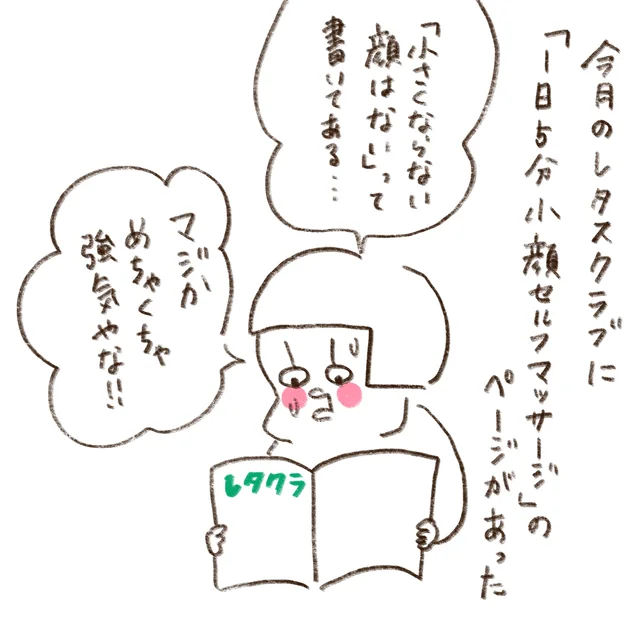 今月のレタスクラブに
「1日5分小顔セルフマッサージ」の
ページがあった
「小さくならない
顔はない」って
書いてある…
マジか
めちゃくちゃ
強気やな!!
レタクラ